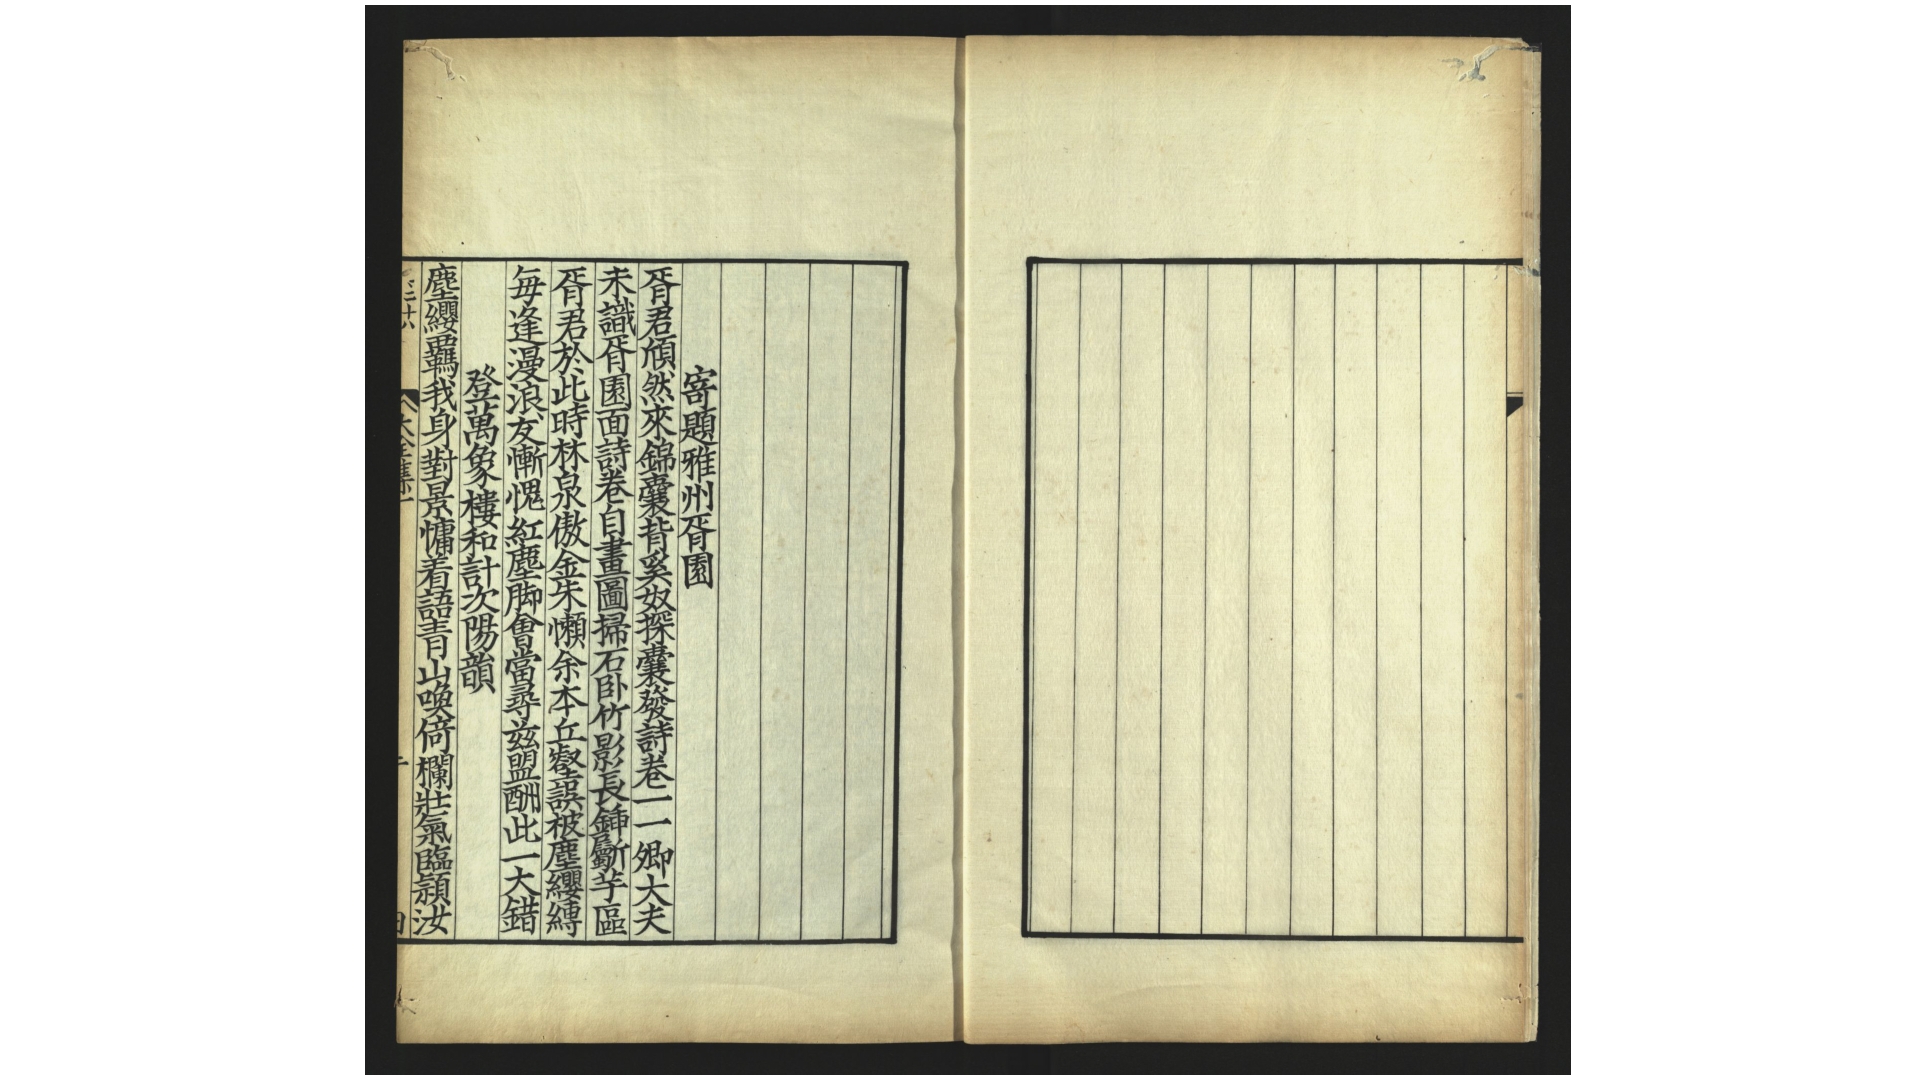 寄題雅州胥園
胥君頎然來錦囊背奚奴探囊發詩卷一一卿大夫
未識胥園面詩卷自畫圖掃石卧竹影長鍤斸芋區
胥君於此時林泉傲金朱懶余本丘壑誤被塵纓縛
每逢漫浪友慚愧紅塵脚會當尋兹盟酬此一大錯
登萬象樓和計次陽韻
塵纓羈我身對景慵着語青山喚倚欄壯氣臨潁汝